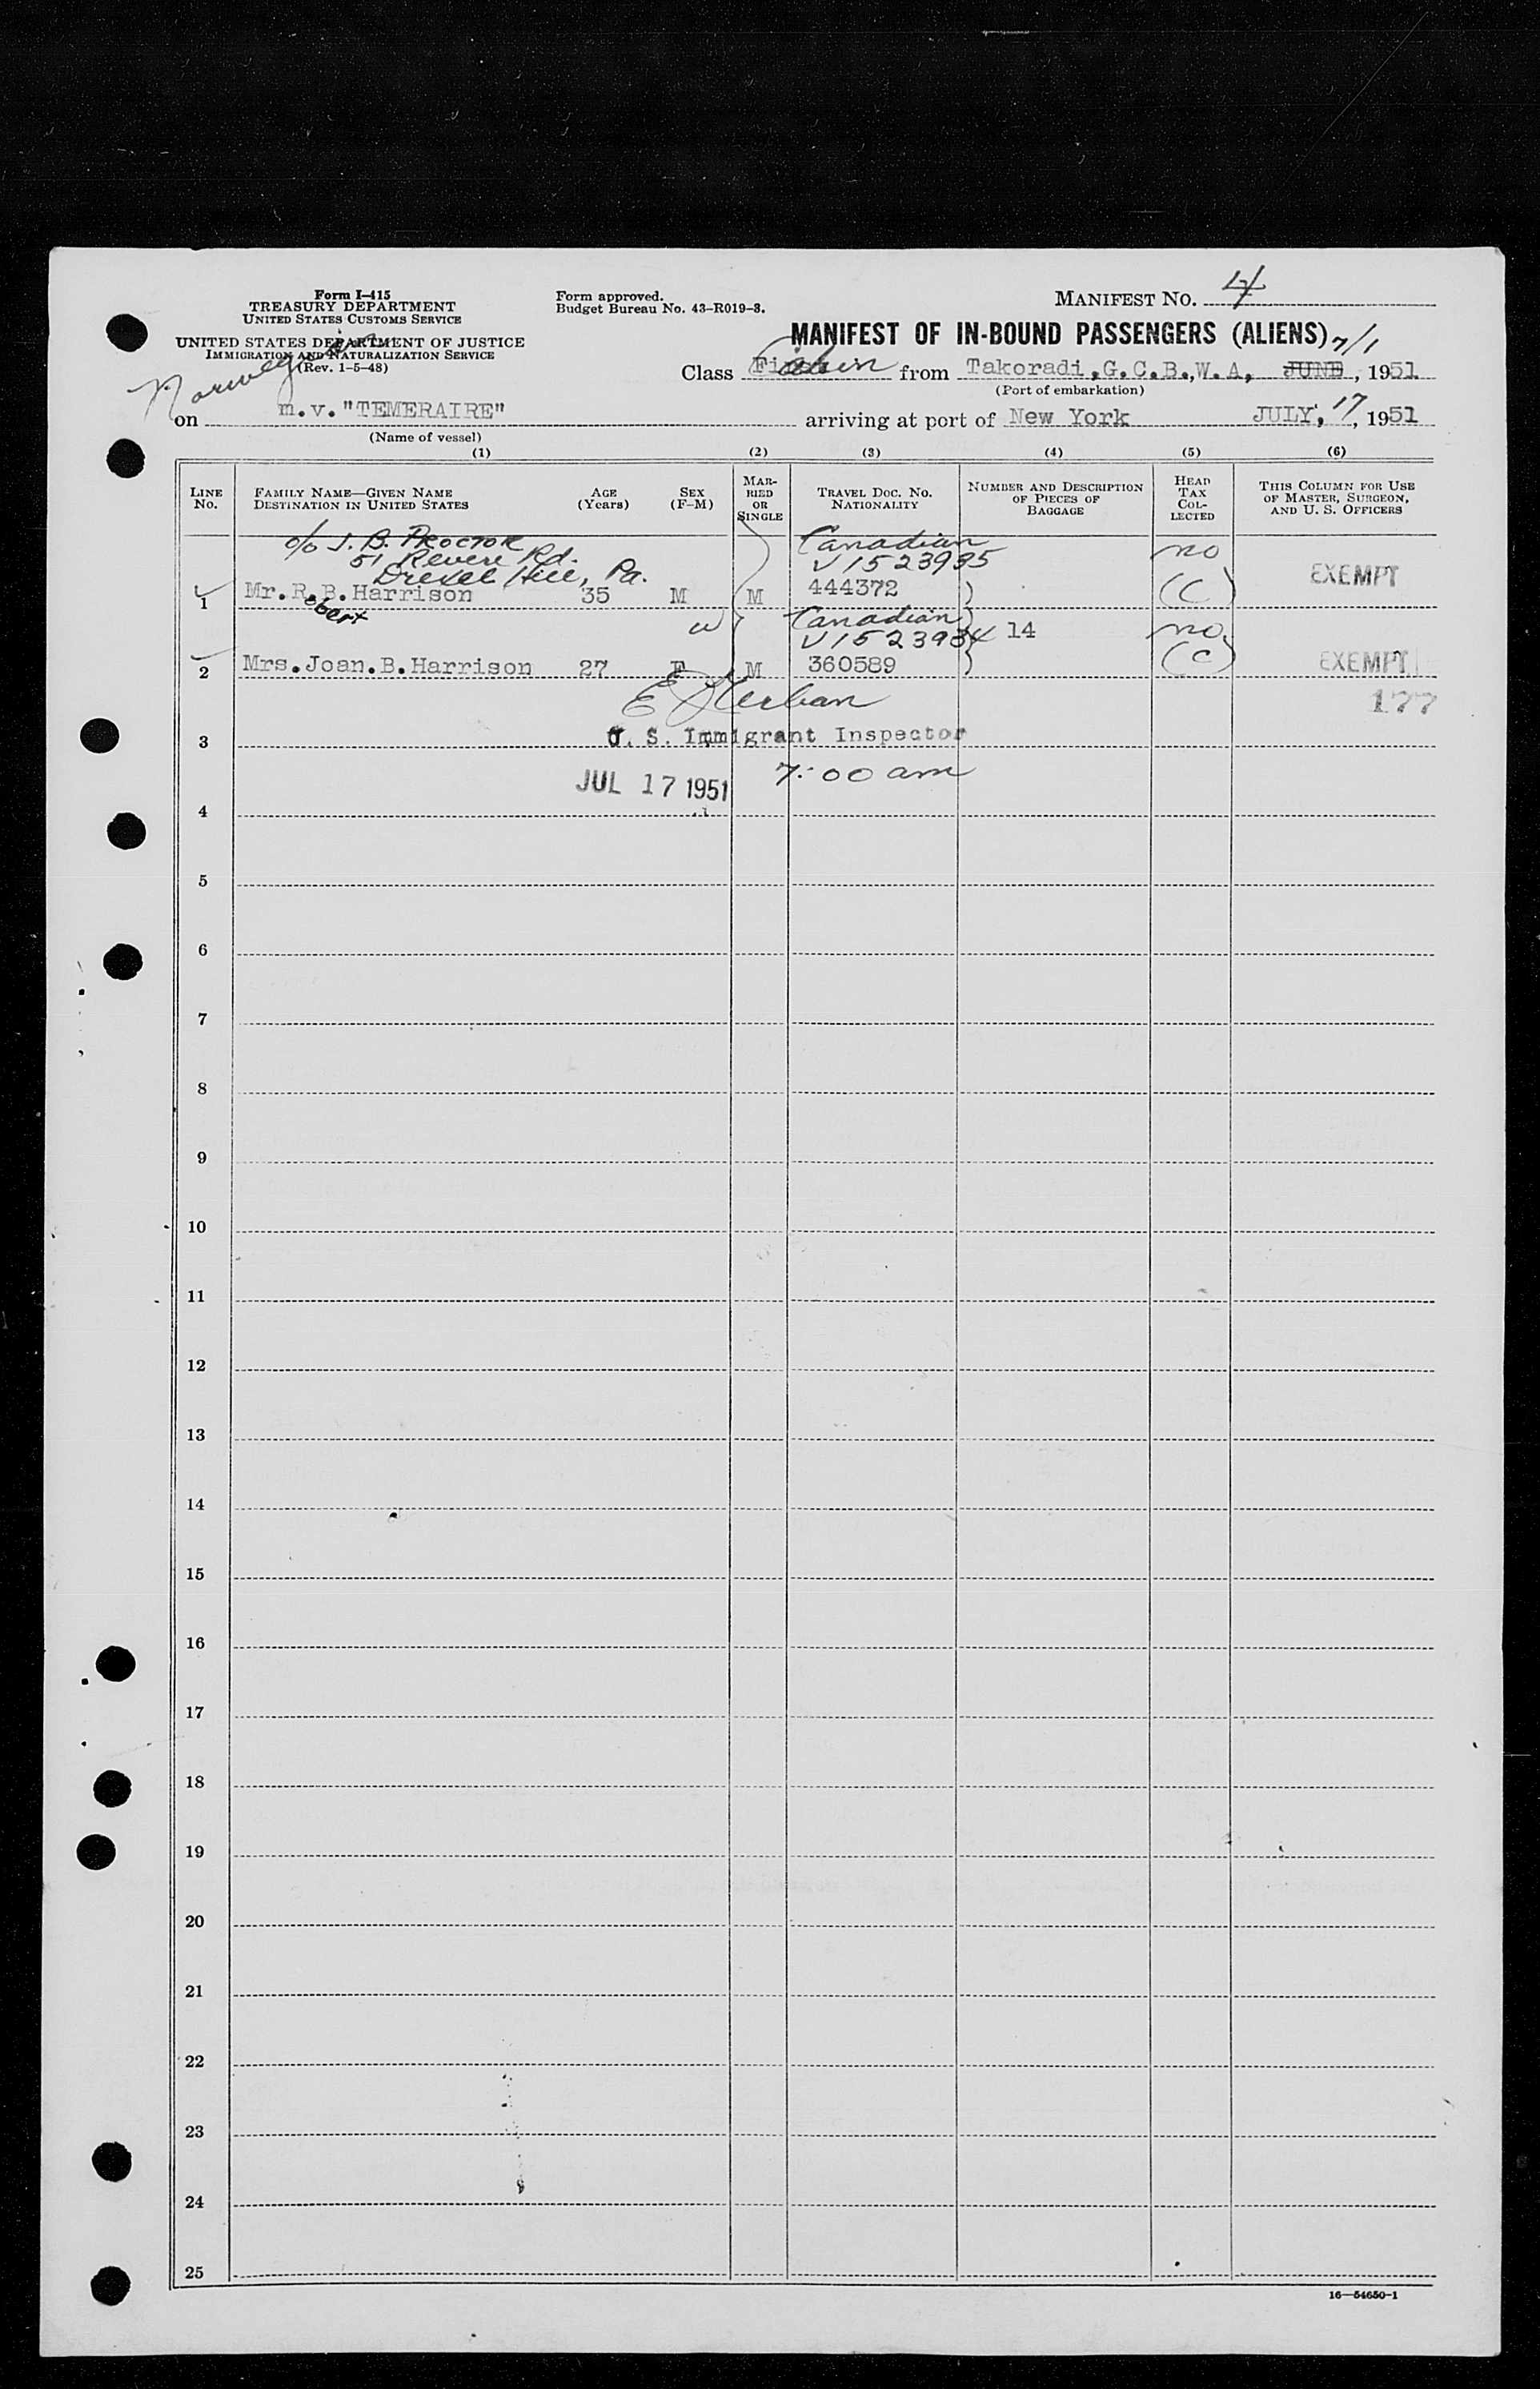 Form I-415
TREASURY DEPARTMENT
UNITED STATES CUSTOMS SERVICE
UNITED STATES DEPARTMENT OF JUSTICE
IMMIGRATION AND NATURALIZATION SERVICE
(Rev. 1-5-48)
Norwegian
Form approved.
Budget Bureau No. 43-R019-3.
MANIFEST NO. 4
MANIFEST OF IN-BOUND PASSENGERS (ALIENS)
7/1
Class Cabin from Takoradi,G.C.B.,W.A, JUNE, 1951
(Port of embarkation)
on m.v."TEMERAIRE" arriving at port of New York JULY, 17, 1951
(Name of vessel)
(1) (2) (3) (4) (5) (6)
LINE No.
FAMILY NAME—GIVEN NAME
DESTINATION IN UNITED STATES
AGE (Years)
SEX (F-M)
MARRIED OR SINGLE
TRAVEL DOC. NO.
NATIONALITY
NUMBER AND DESCRIPTION OF PIECES OF BAGGAGE
HEAD TAX COLLECTED
THIS COLUMN FOR USE OF MASTER, SURGEON, AND U. S. OFFICERS
c/o J. B. PROCTOR Canadian no
51 Revere Rd. V1523935
Drexel Hill, Pa.
1 Mr.R.B.Harrison 35 M M 444372 ) (C) EXEMPT
obert
Canadian )
W V1523934 14 no
2 Mrs.Joan.B.Harrison 27 F M 360589 ) (C) EXEMPT
177
3 U. S. Immigrant Inspector
JUL 17 1951 7:00 am
4
5
6
7
8
9
10
11
12
13
14
15
16
17
18
19
20
21
22
23
24
25
16—54650-1